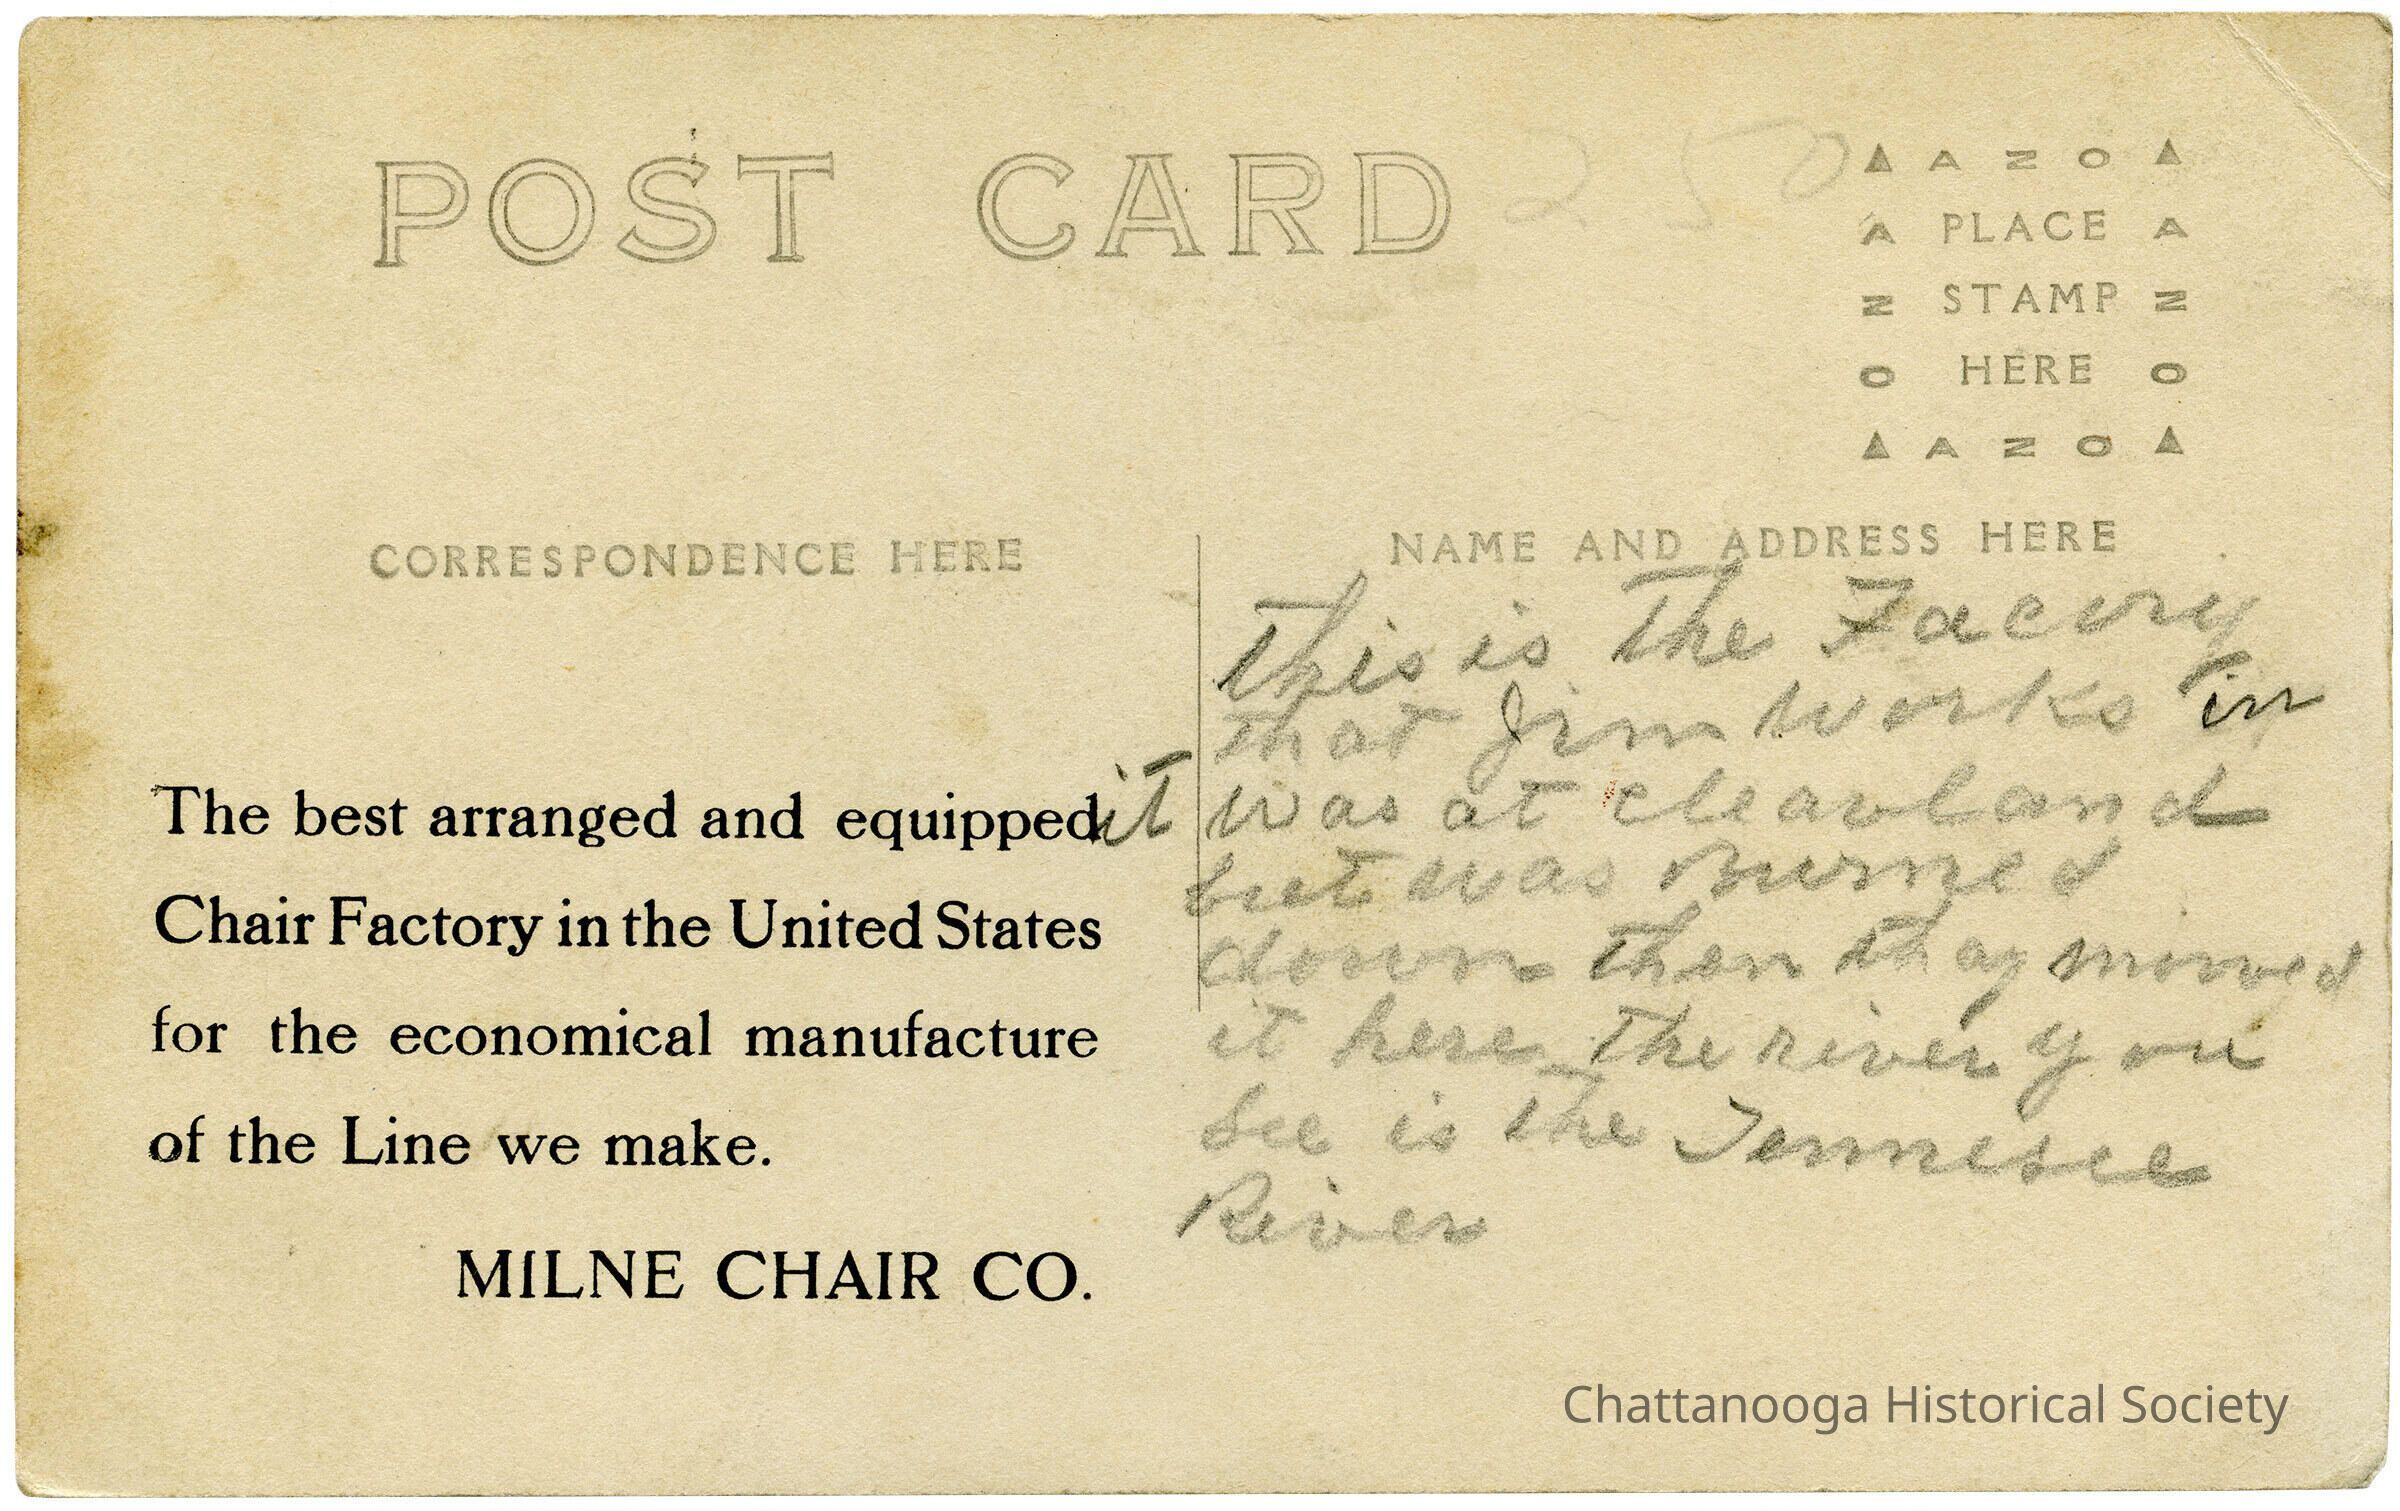 POST CARD 250
▲ A Z O ▲
A PLACE A
Z STAMP Z
O HERE O
▲ A Z O ▲
CORRESPONDENCE HERE
NAME AND ADDRESS HERE
The best arranged and equipped
Chair Factory in the United States
for the economical manufacture
of the Line we make.
MILNE CHAIR CO.
This is The Facory
that Jim works in
it was at cleavland
but was Burned
down then thay mooved
it here The river you
See is The Tennesee
River
Chattanooga Historical Society